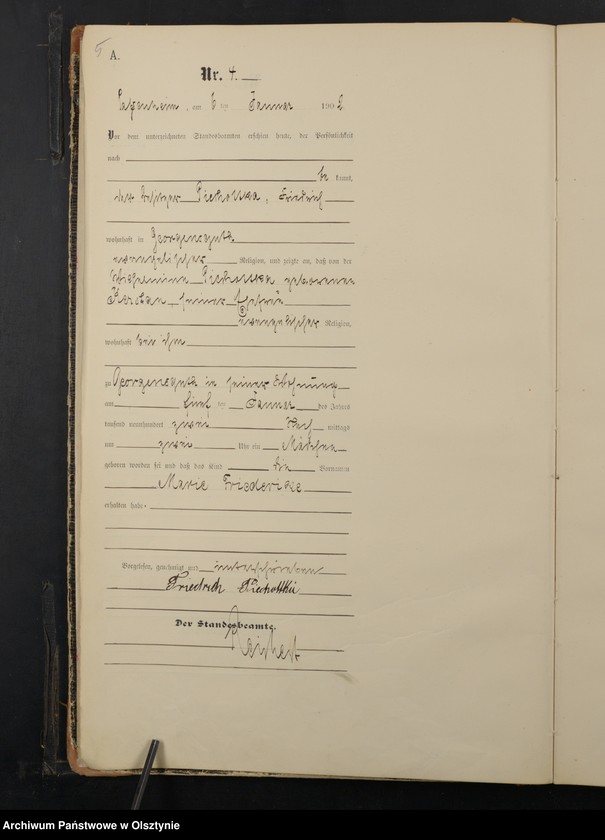 5
A.
Nr. 4.
am 6 ten Januar 1902
Vor dem unterzeichneten Standesbeamten erschien heute, der Persönlichkeit
nach
be kannt,
der Piechottka, Friedrich
wohnhaft in Georgensguth
evangelischer Religion, und zeigte an, daß von der
Wilhelmine Piechottka geborenen
seiner Ehefrau
evangelischer Religion,
wohnhaft bei ihm
zu Georgensguth in seiner Wohnung
am fünf ten Januar des Jahres
tausend neunhundert zwei Nach mittags
um zwei Uhr ein Mädchen
geboren worden sei und daß das Kind die Vornamen
Marie Friedericke
erhalten habe.
Vorgelesen, genehmigt und unterschrieben
Friedrich Piechottka
Der Standesbeamte.
Archiwum Państwowe w Olsztynie